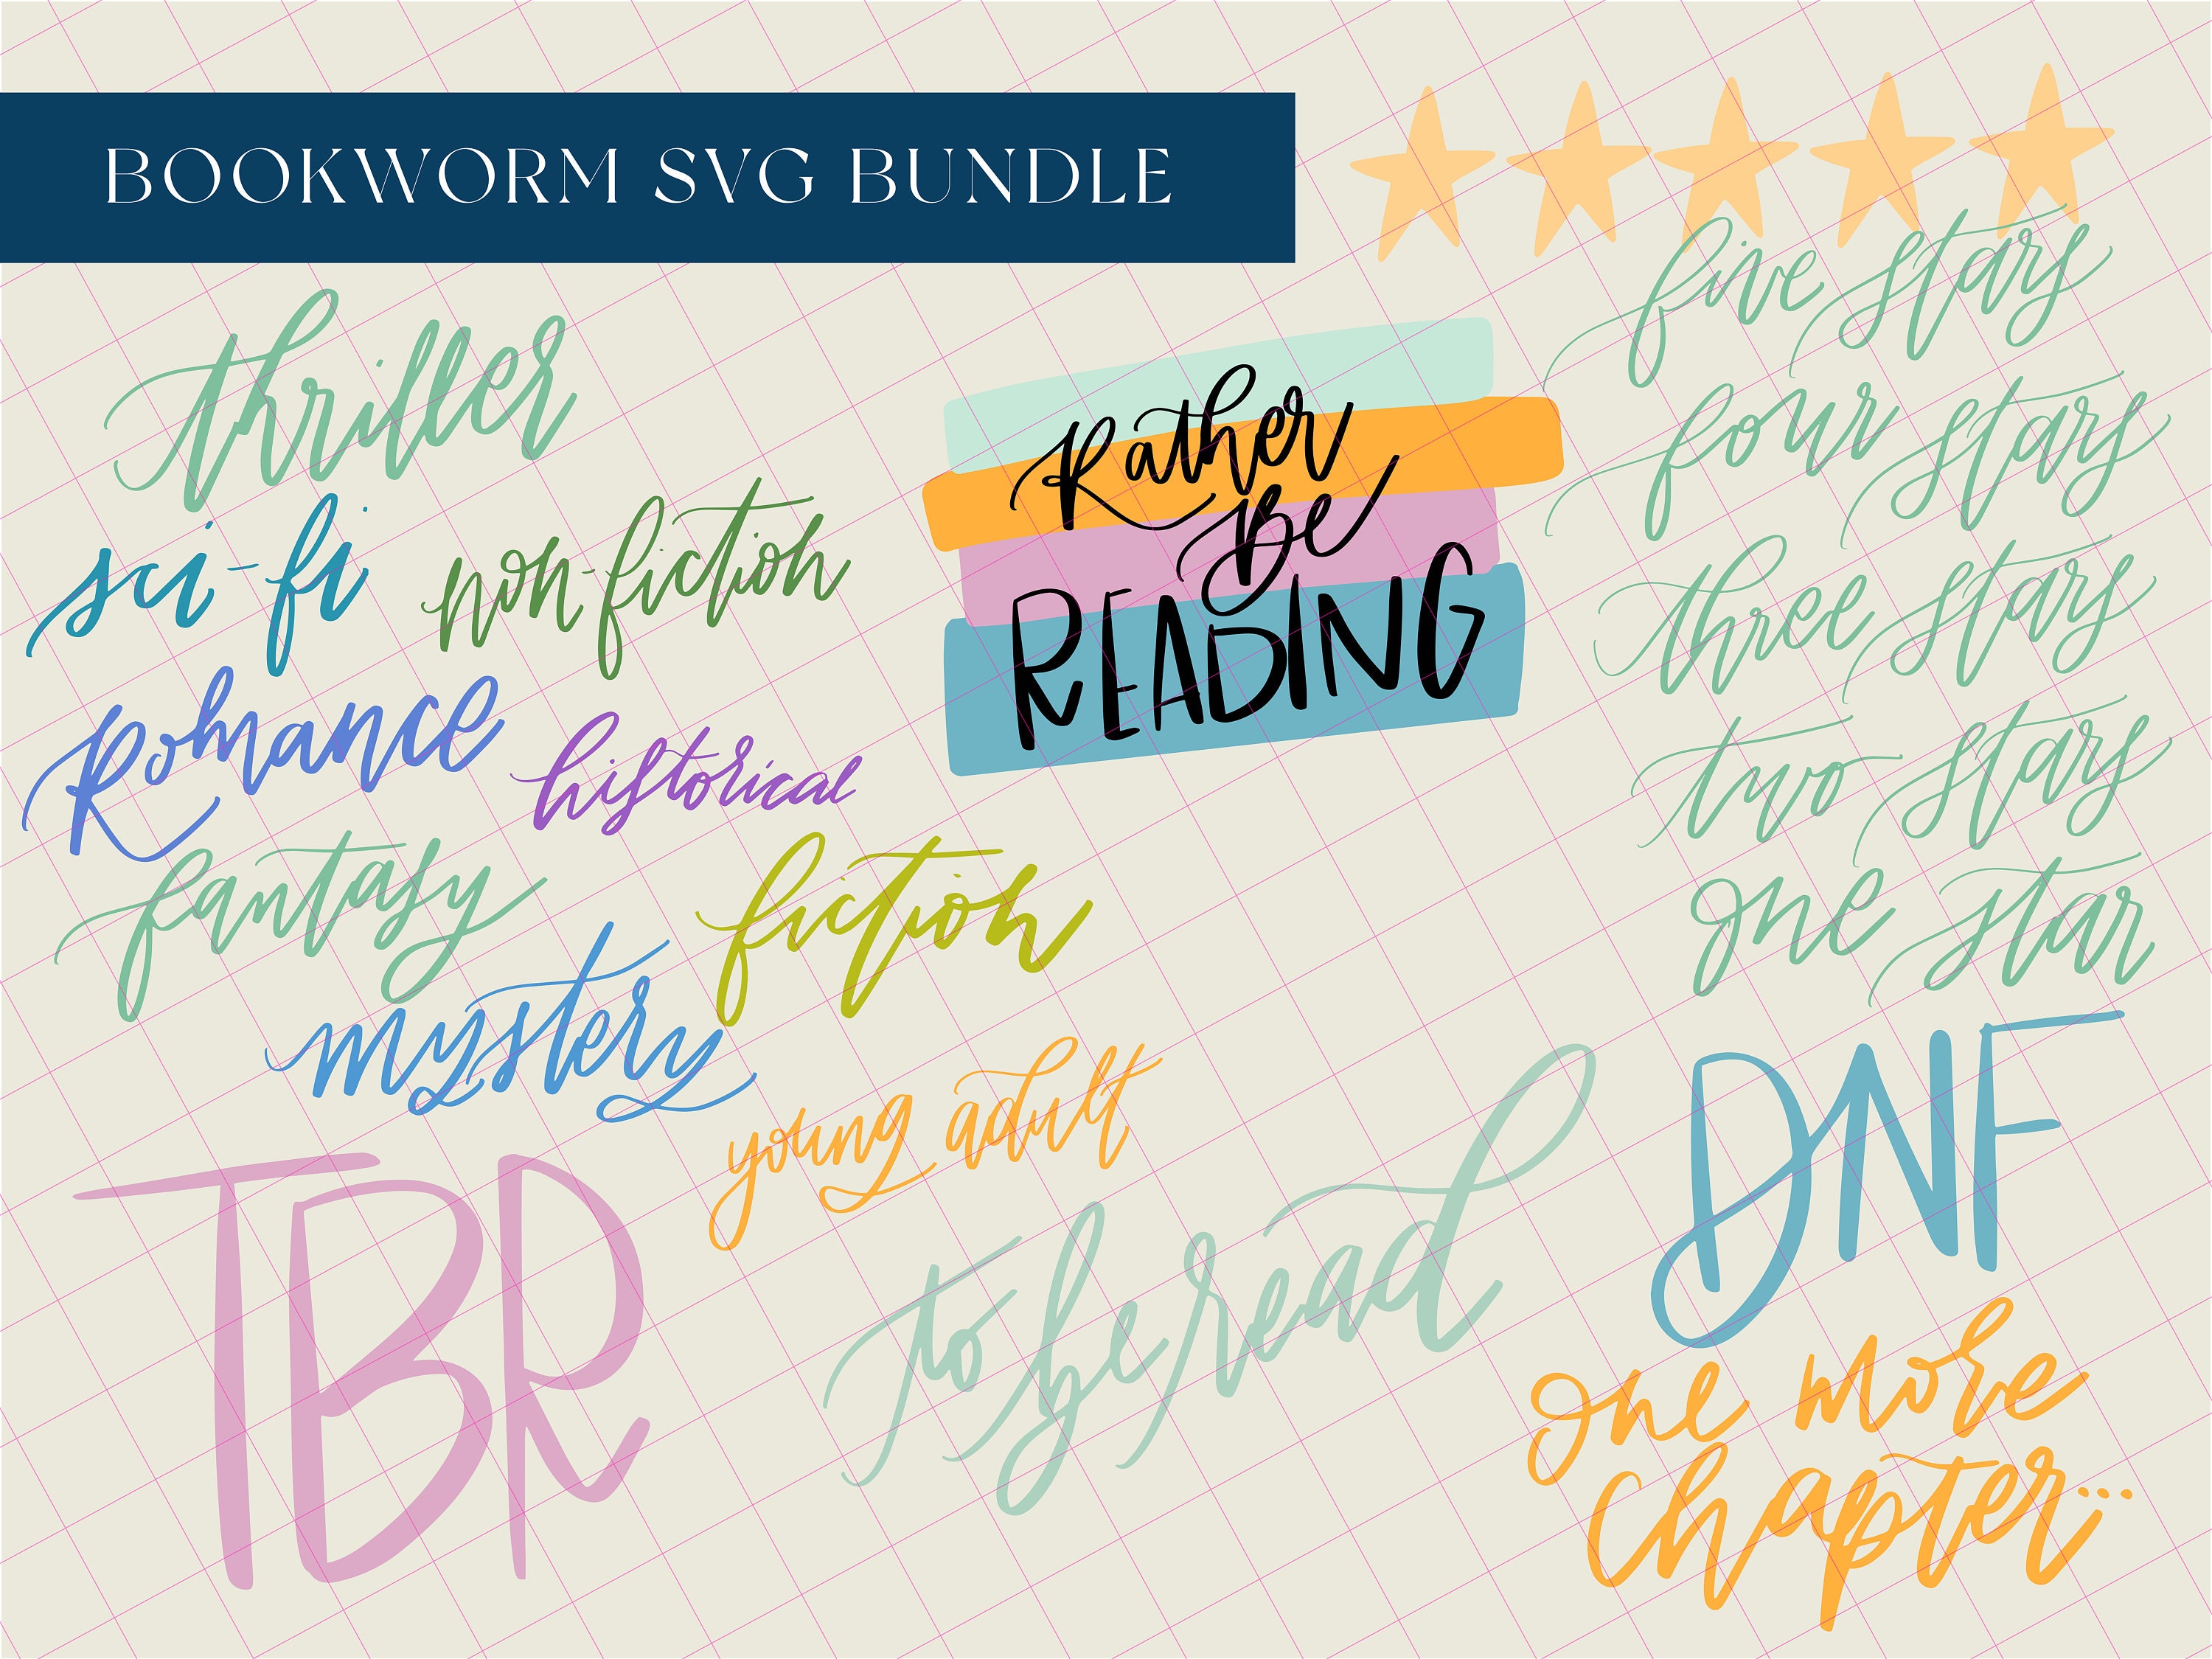 BOOKWORM SVG BUNDLE
thriller
sci-fi
non-fiction
Romance
historical
fantasy
fiction
mystery
young adult
TBR
to be read
Rather
Be
READING
five stars
four stars
three stars
two stars
one star
DNF
one more
chapter...